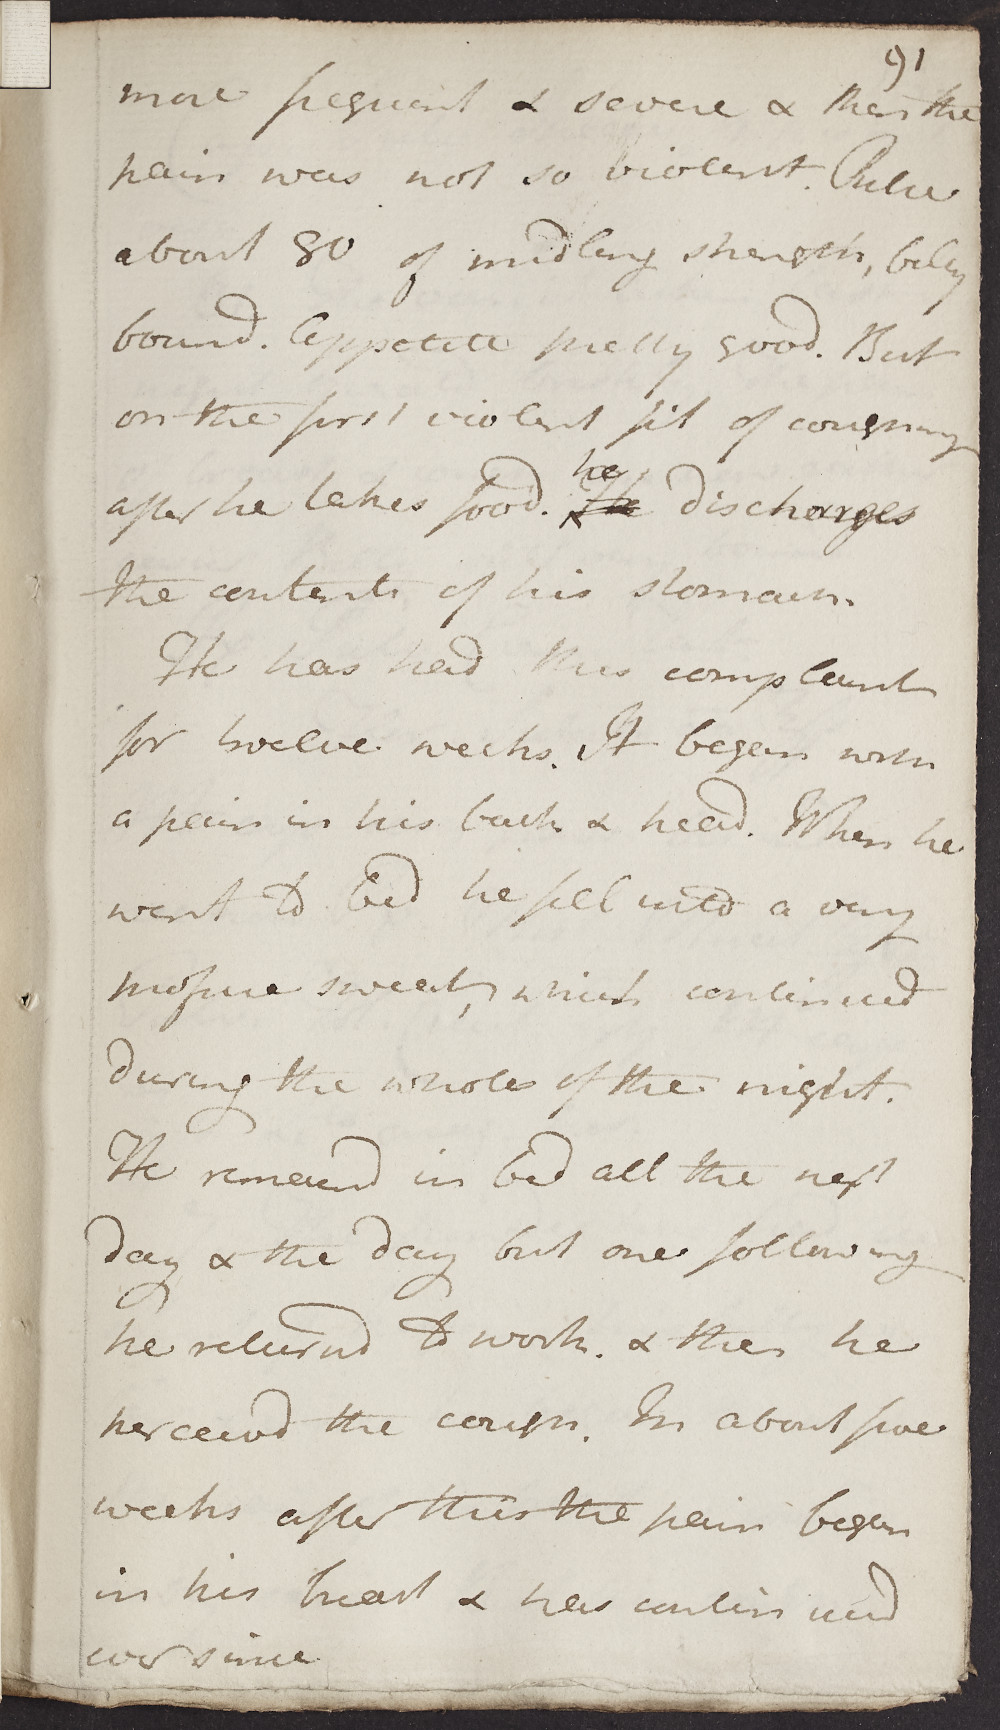 91
more frequent & severe & then the
pain was not so violent. Pulse
about 80 of midling strength, belly
bound. Appetite pretty good. But
on the first violent fit of coughing
after he takes food. he He discharges
the contents of his stomach.
He has had this complaint
for twelve weeks. It began with
a pain in his back & head. When he
went to bed he fell into a very
profuse sweat, which continued
during the whole of the night.
He remaind in bed all the next
day & the day but one following
he returnd to work. & then he
perceivd the cough. In about five
weeks after this the pain began
in his breast & has continued
ever since